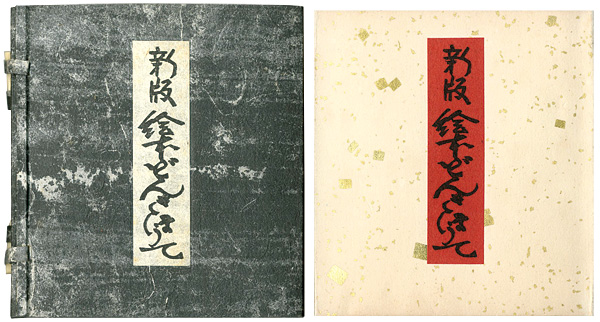 新版 絵本どんきほうて
新版 絵本どんきほうて